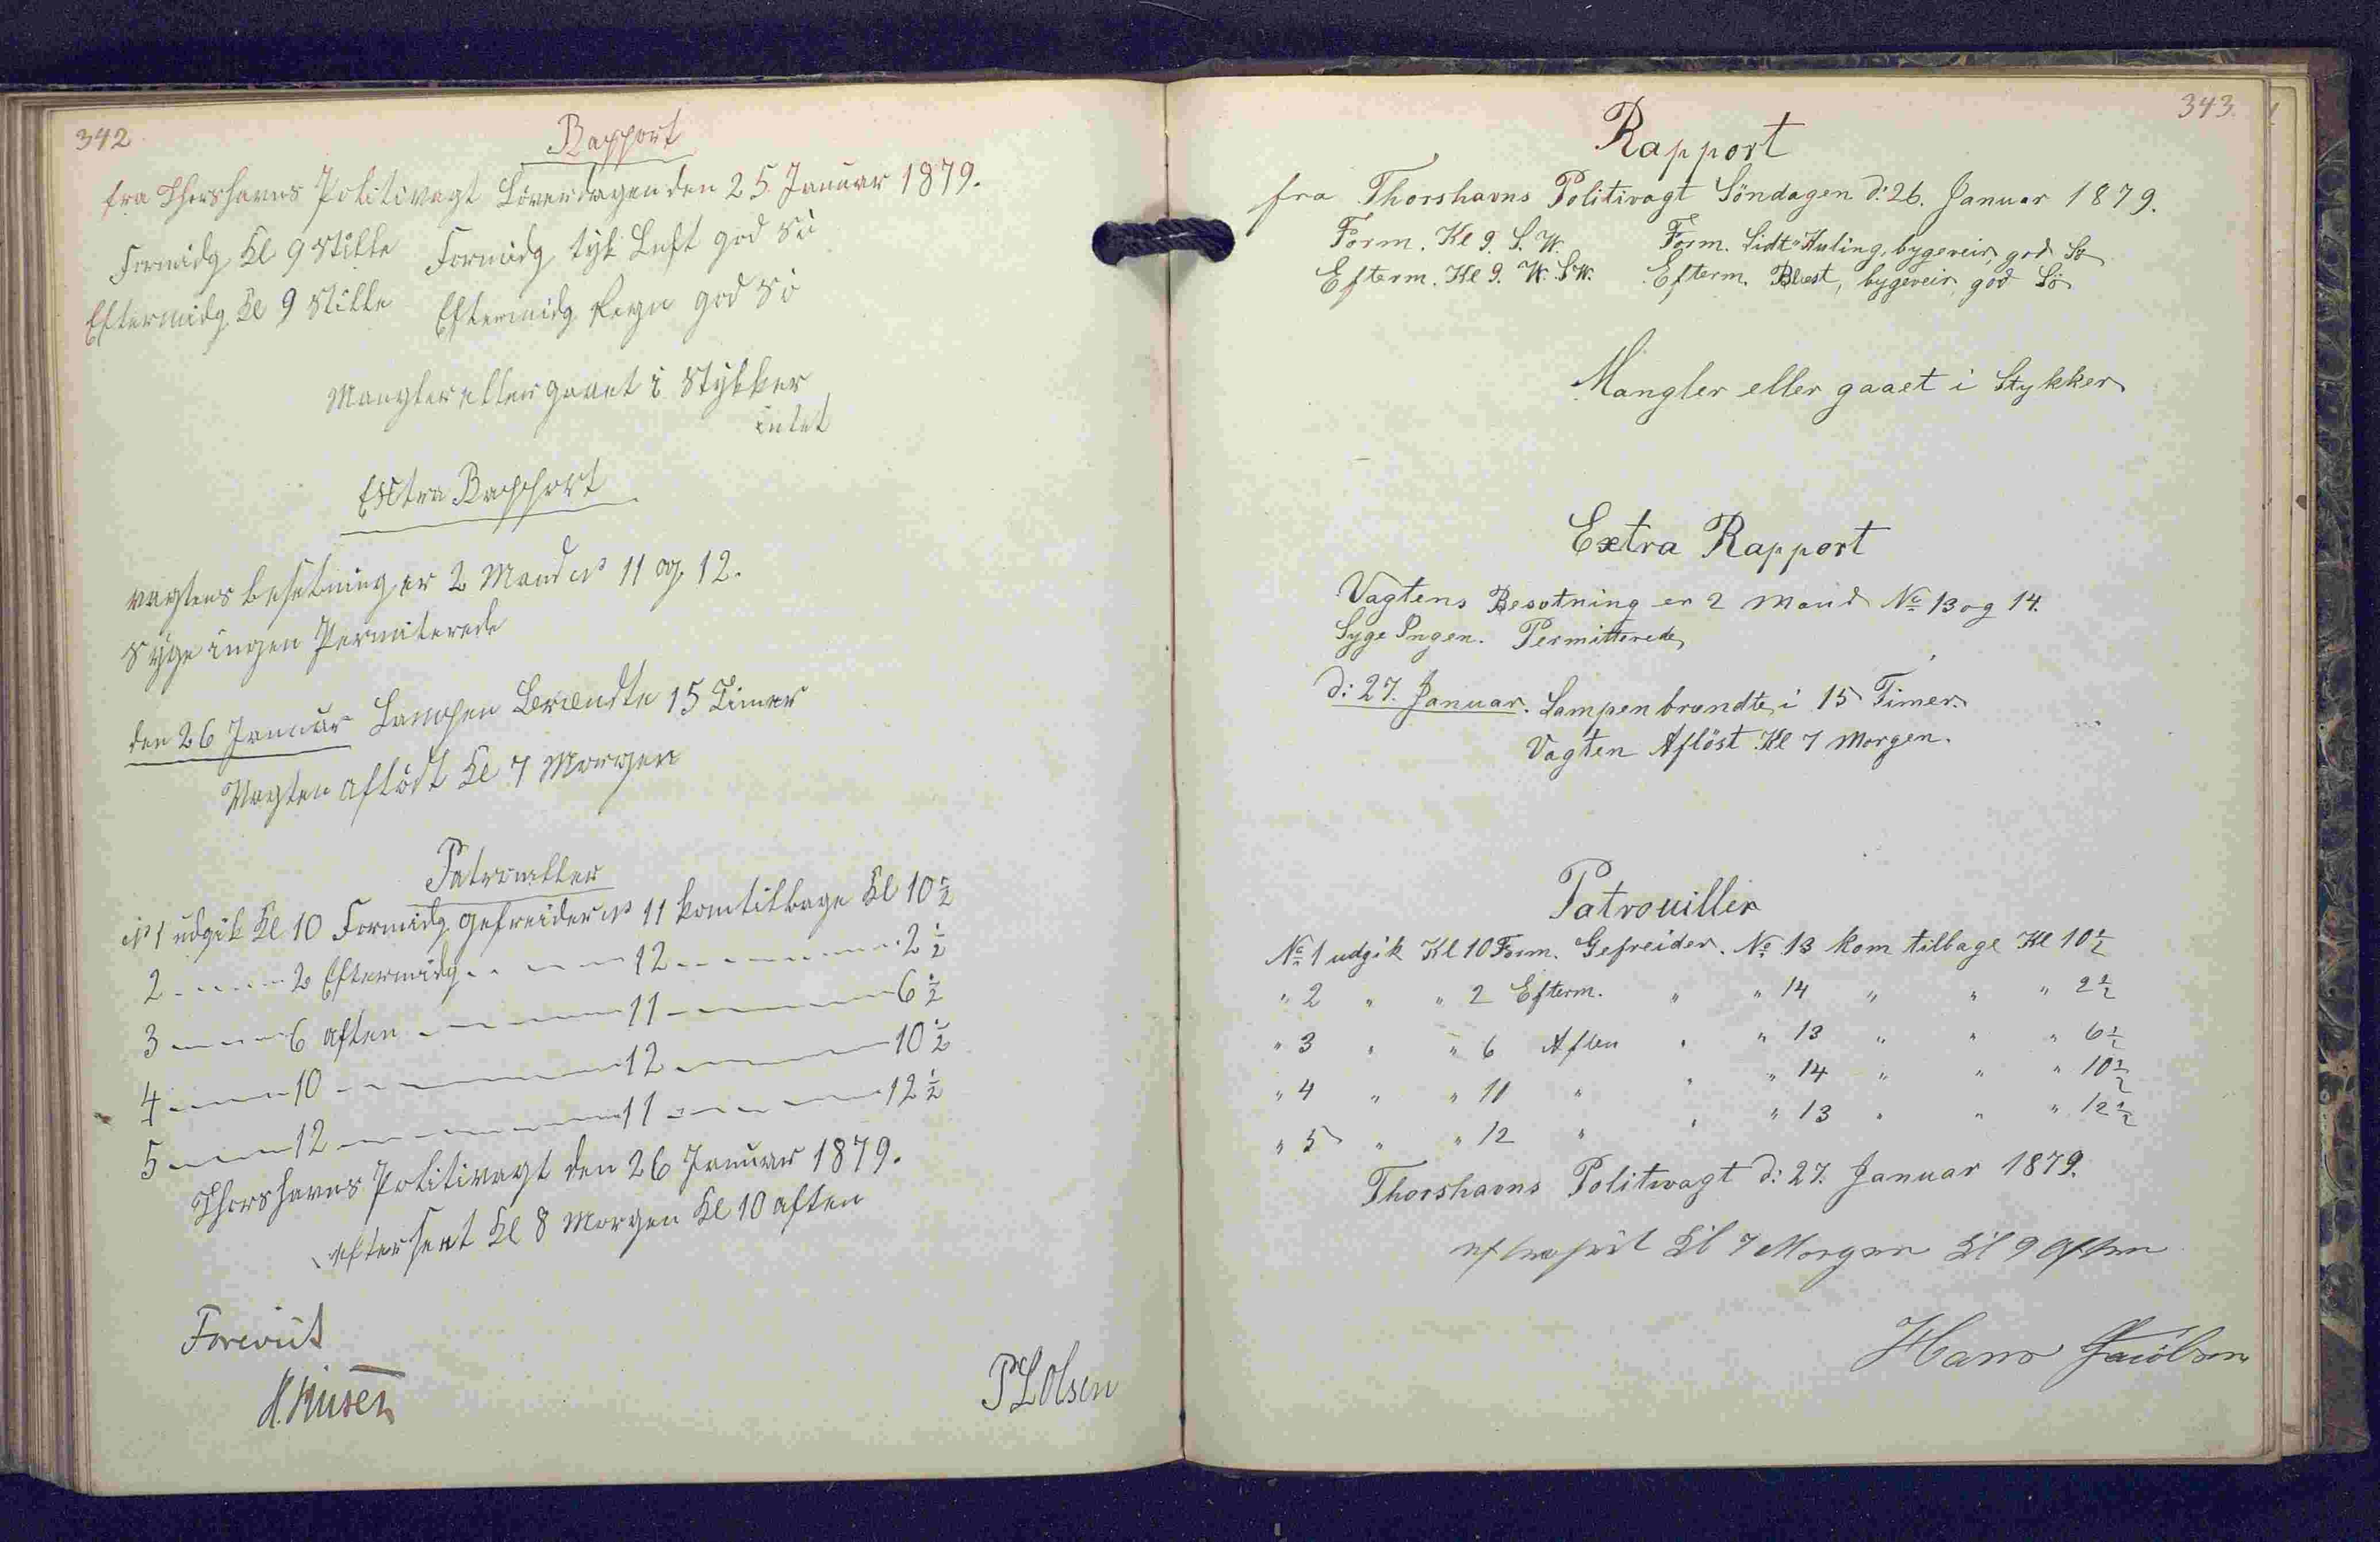 342
Rapport
fra Thorshavns Politivagt Löverdagen den 25 Januar 1879.
Formidg Kl 9 Stille Formidg tyk Luft god Sö
Eftermidg Kl 9 Stille Eftermidg Regn god Sö
Mangler eller gaaet i Stykker
intet
Extra Rapport
Vagtens besetning er 2 Mand No 11 og 12.
Syge ingen Permiterede
den 26 Januar Lampen Brændte 15 Timer
Vagten aflöst Kl 7 Morgen
Patrouller
No 1 udgik Kl 10 Formidg Gefreider No 11 kom tilbage Kl 10 1/2
2 - - - - 2 Eftermidg - - - - 12 - - - - - - 2 1/2
3 - - - - 6 Aften - - - - - 11 - - - - - - 6 1/2
4 - - - - 10 - - - - - - - 12 - - - - - - 10 1/2
5 - - - - 12 - - - - - - - 11 - - - - - - 12 1/2
Thorshavns Politivagt den 26 Januar 1879.
efterseet Kl 8 Morgen Kl 10 Aften
Forevist
P L Olsen
343.
Rapport
fra Thorshavns Politivagt Söndagen d: 26. Januar 1879.
Form. Kl 9. S. W. Form. Lidt Kuling, bygeveir, god Sö
Efterm. Kl 9. W. S W. Efterm. Blæst, bygeveir, god Sö
Mangler eller gaaet i Stykker
Extra Rapport
Vagtens Besætning er 2 Mand No 13 og 14.
Syge Ingen. Permitterede
d: 27. Januar. Lampen brændte i 15 Timer.
Vagten Aflöst Kl 7 Morgen.
Patrouiller
No 1 udgik Kl 10 Form. Gefreider. No 13 kom tilbage Kl 10 1/2
" 2 " " 2 Efterm. " " 14 " " " 2 1/2
" 3 " " 6 Aften " " 13 " " " 6 1/2
" 4 " " 11 " " " 14 " " " 10 1/2
" 5 " " 12 " " " 13 " " " 12 1/2
Thorshavns Politivagt d: 27. Januar 1879.
efterseet Kl 7 Morgen Kl 9 Aften
Hans Jacobsen